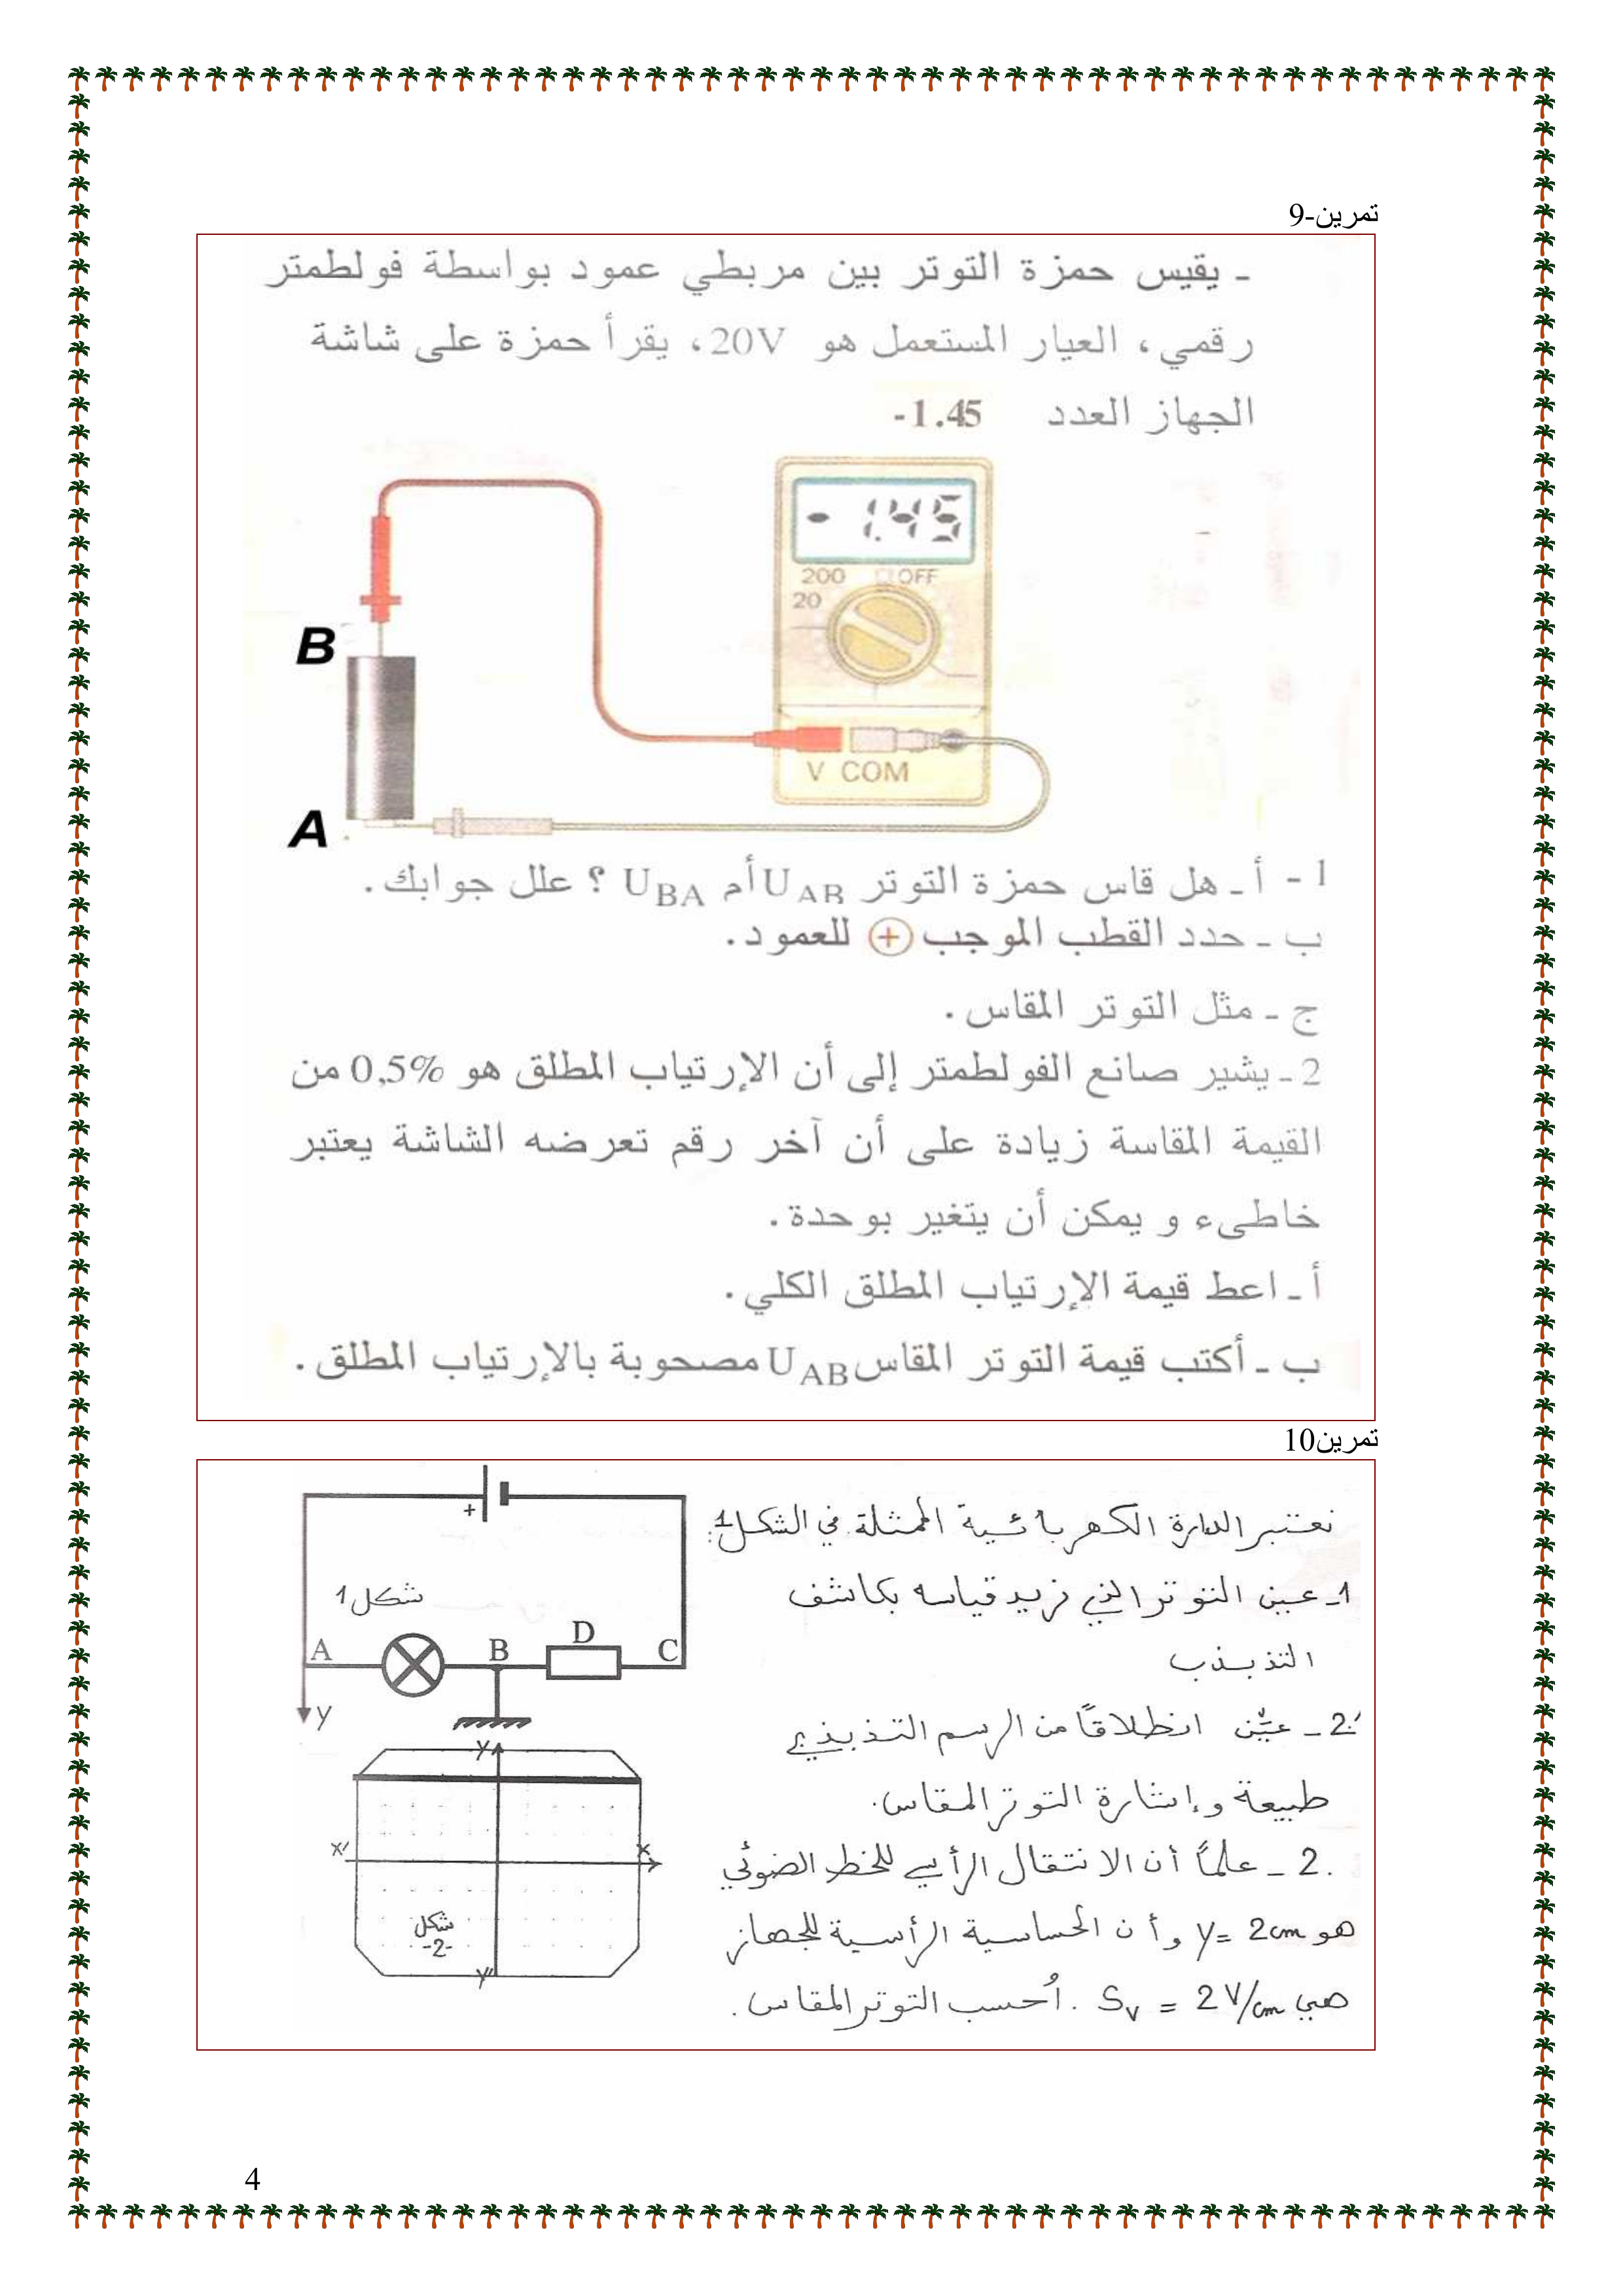 تمرين-9
- يقيس حمزة التوتر بين مربطي عمود بواسطة فولطمتر
رقمي، العيار المستعمل هو 20V، يقرأ حمزة على شاشة
الجهاز العدد -1.45
-1.45
200 OFF
20
B
V COM
A
1 - أ - هل قاس حمزة التوتر UAB أم UBA ؟ علل جوابك .
ب - حدد القطب الموجب + للعمود.
ج - مثل التوتر المقاس .
2 - يشير صانع الفولطمتر إلى أن الإرتياب المطلق هو 0,5% من
القيمة المقاسة زيادة على أن آخر رقم تعرضه الشاشة يعتبر
خاطىء و يمكن أن يتغير بوحدة .
أ - اعط قيمة الإرتياب المطلق الكلي .
ب - أكتب قيمة التوتر المقاس UAB مصحوبة بالإرتياب المطلق .
تمرين10
نعتبر الدارة الكهربائية الممثلة في الشكل1:
1- عين التوتر الذي نريد قياسه بكاشف
التذبذب
2- عيّن انطلاقًا من الرسم التذبذبي
طبيعة وإشارة التوتر المقاس.
2 - علمًا أن الانتقال الرأسي للخط الضوئي
هو y= 2cm وأن الحساسية الرأسية للجهاز
هي Sv = 2V/cm . أُحسب التوتر المقاس .
+
شكل1
A
B
D
C
y
y
x'
x
شكل
-2-
y'
4